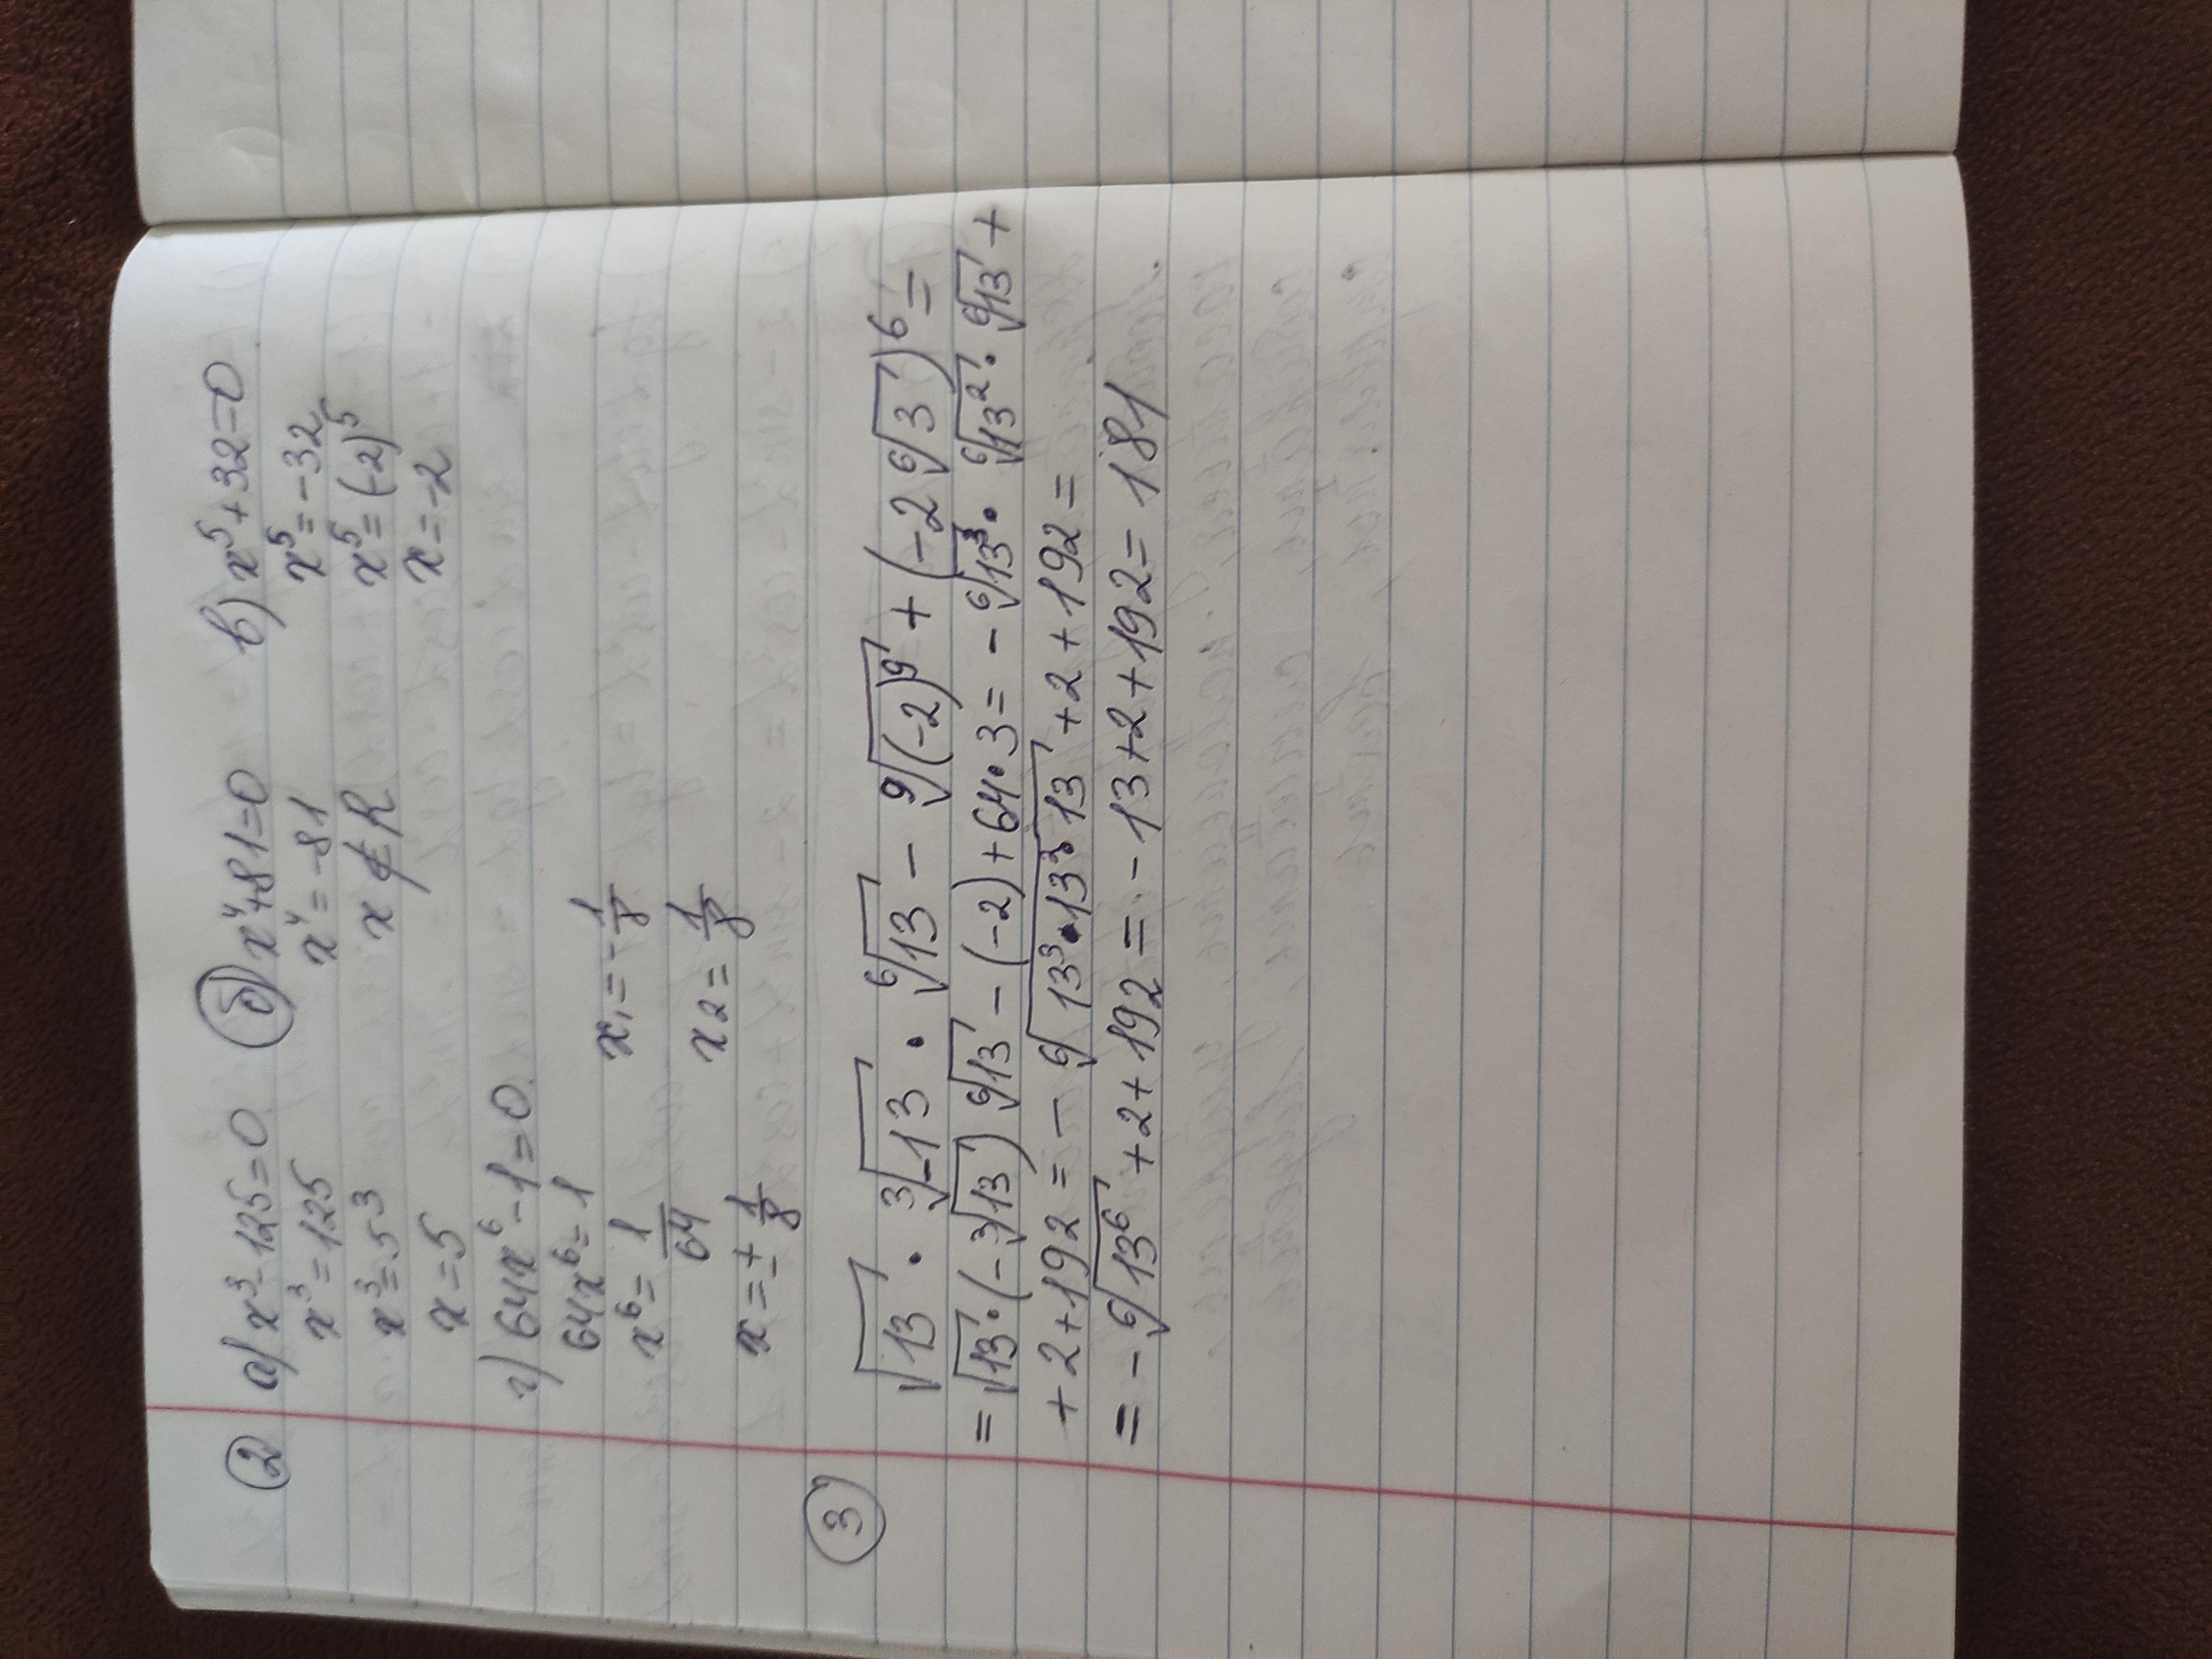 ② а) x³-125=0 б) x⁴+81=0 в) x⁵+32=0
x³=125 x⁴=-81 x⁵=-32
x³=5³ x∉R x⁵=(-2)⁵
x=5 x=-2
г) 64x⁶-1=0
64x⁶=1
x⁶=1/64 x₁=-1/8
x=±1/8 x₂=1/8
③ √13 · ³√-13 · ⁶√13 - ⁹√(-2)⁹ + (-2⁶√3)⁶ =
= √13 · (-³√13) ⁶√13 - (-2) + 64·3 = - ⁶√13³ · ⁶√13² · ⁶√13 +
+ 2 + 192 = - ⁶√13³·13²·13 + 2 + 192 =
= - ⁶√13⁶ + 2 + 192 = - 13 + 2 + 192 = 181